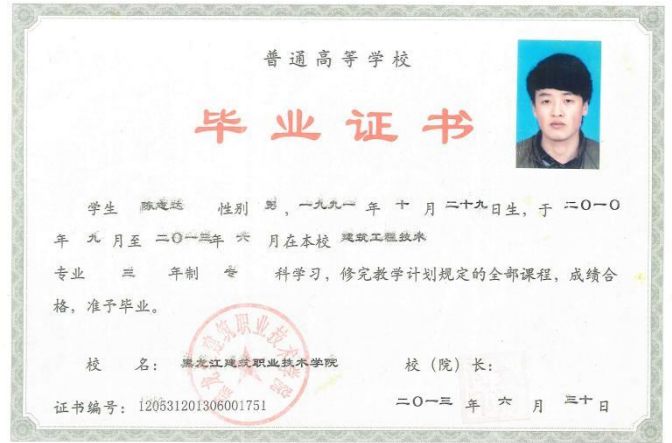 普通高等学校
毕业证书
学生 陈志达 性别 男，一九九一年 十 月 二十九日生，于 二〇一〇
年 九 月至 二〇一三年 六 月在本校 建筑工程技术
专业 三 年制 专 科学习，修完教学计划规定的全部课程，成绩合
格，准予毕业。
校 名： 黑龙江建筑职业技术学院 校（院）长：
证书编号：120531201306001751 二〇一三 年 六 月 三十日
黑龙江建筑职业技术学院